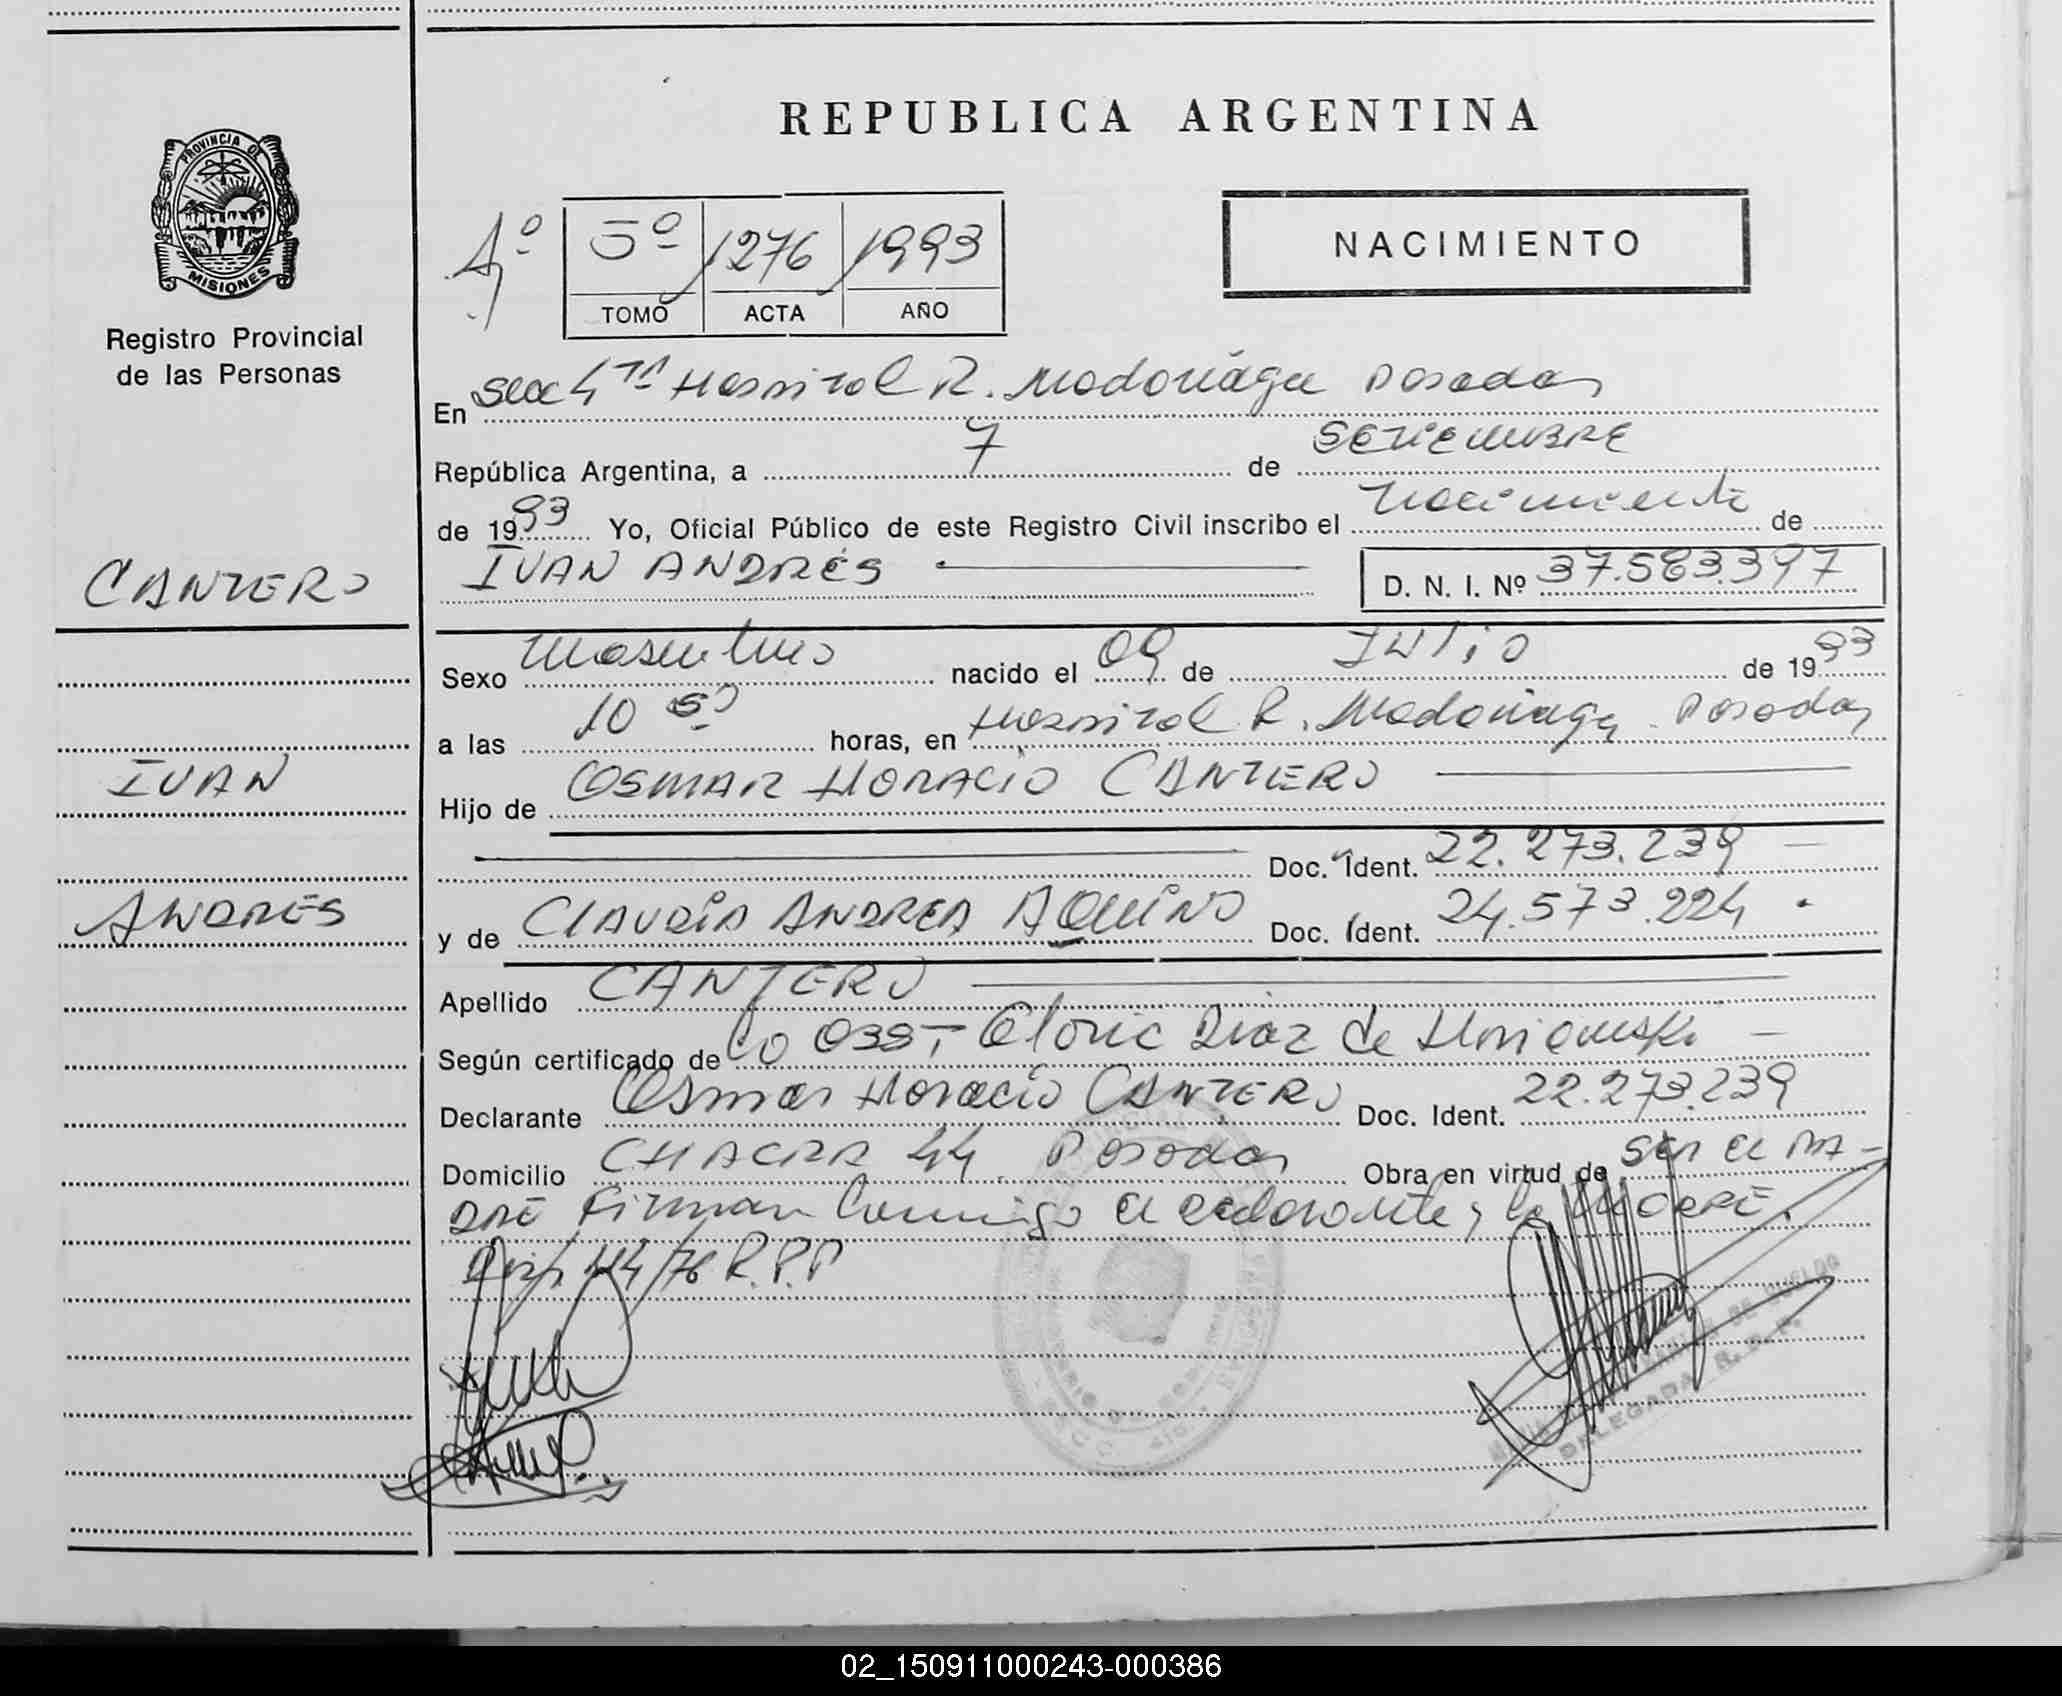 REPUBLICA ARGENTINA
PROVINCIA DE
MISIONES
Registro Provincial
de las Personas
Aº 5º 1276 1993
TOMO ACTA AÑO
NACIMIENTO
En Secc 4ta Hospital R. Madariaga Posadas
República Argentina, a 7 de SETIEMBRE
de 1993 Yo, Oficial Público de este Registro Civil inscribo el nacimiento de
IVAN ANDRÉS D. N. I. Nº 37.583.397
CANTERO
Sexo masculino nacido el 09 de JULIO de 1993
a las 10 50 horas, en Hospital R. Madariaga Posadas
IVAN
Hijo de OSMAR HORACIO CANTERO
Doc. Ident. 22.273.239
ANDRES
y de CLAUDIA ANDREA AQUINO Doc. Ident. 24.573.224
Apellido CANTERO
Según certificado de Diaz de
Declarante Osmar Horacio CANTERO Doc. Ident. 22.273.239
Domicilio CHACRA 44 Posadas Obra en virtud de ser el PA-
DRE Firman conmigo el declarante y la MADRE.
/76 R.P.P
DELEGADA R. P. P.
02_150911000243-000386